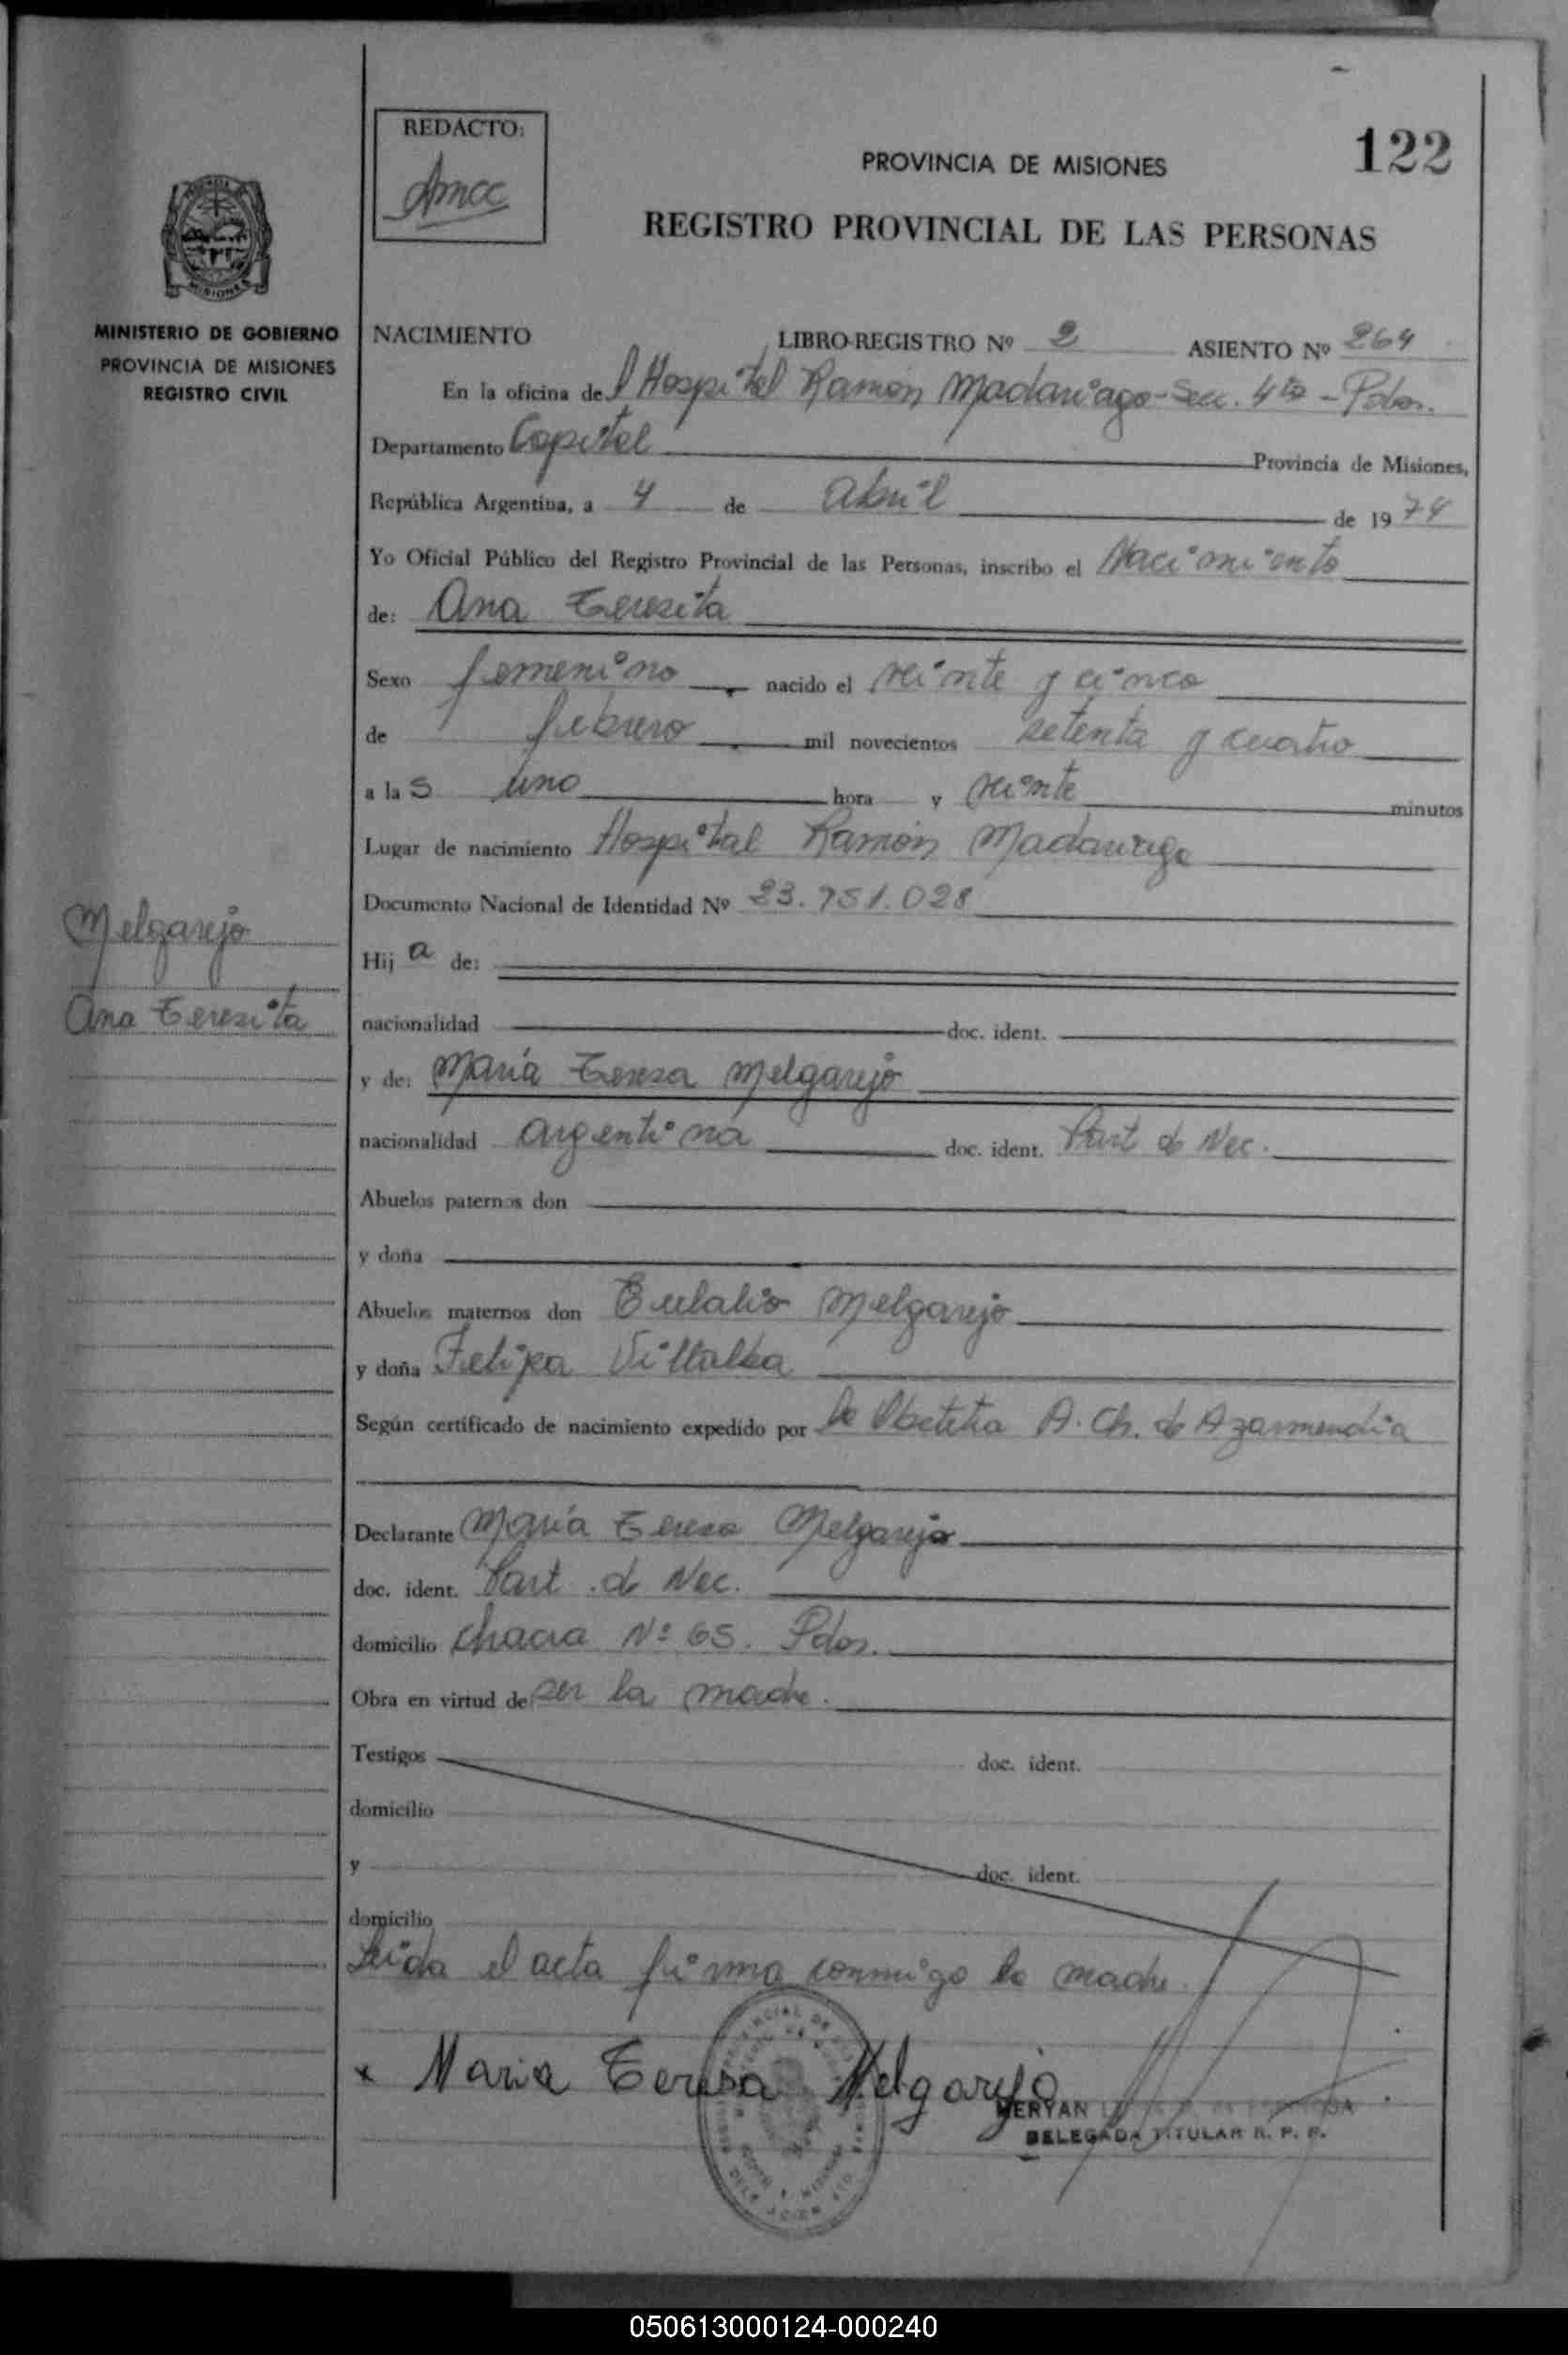 122
REDACTO:
Amcc
PROVINCIA DE MISIONES
REGISTRO PROVINCIAL DE LAS PERSONAS
MISIONES
MINISTERIO DE GOBIERNO
PROVINCIA DE MISIONES
REGISTRO CIVIL
NACIMIENTO LIBRO-REGISTRO Nº 2 ASIENTO Nº 264
En la oficina del Hospital Ramón Madariaga - Sec. 4ta - Pdas.
Departamento Capital Provincia de Misiones,
República Argentina, a 4 de abril de 1974
Yo Oficial Público del Registro Provincial de las Personas, inscribo el Nacimiento
de: Ana Teresita
Sexo femenino nacido el veinte y cinco
de febrero mil novecientos setenta y cuatro
a las uno hora y veinte minutos
Lugar de nacimiento Hospital Ramón Madariaga
Documento Nacional de Identidad Nº 23.751.028
Melgarejo
Ana Teresita
Hija de:
nacionalidad doc. ident.
y de: María Teresa Melgarejo
nacionalidad argentina doc. ident. Part de Nec.
Abuelos paternos don
y doña
Abuelos maternos don Eulalio Melgarejo
y doña Felipa Villalba
Según certificado de nacimiento expedido por la Obstetra A. Ch. de Azarmendia
Declarante María Teresa Melgarejo
doc. ident. Part. de Nec.
domicilio chacra Nº 65. Pdas.
Obra en virtud de ser la madre.
Testigos doc. ident.
domicilio
y doc. ident.
domicilio
Leida el acta firma conmigo la madre.
x Maria Teresa Melgarejo
MERYAN
DELEGADA TITULAR R. P. P.
050613000124-000240